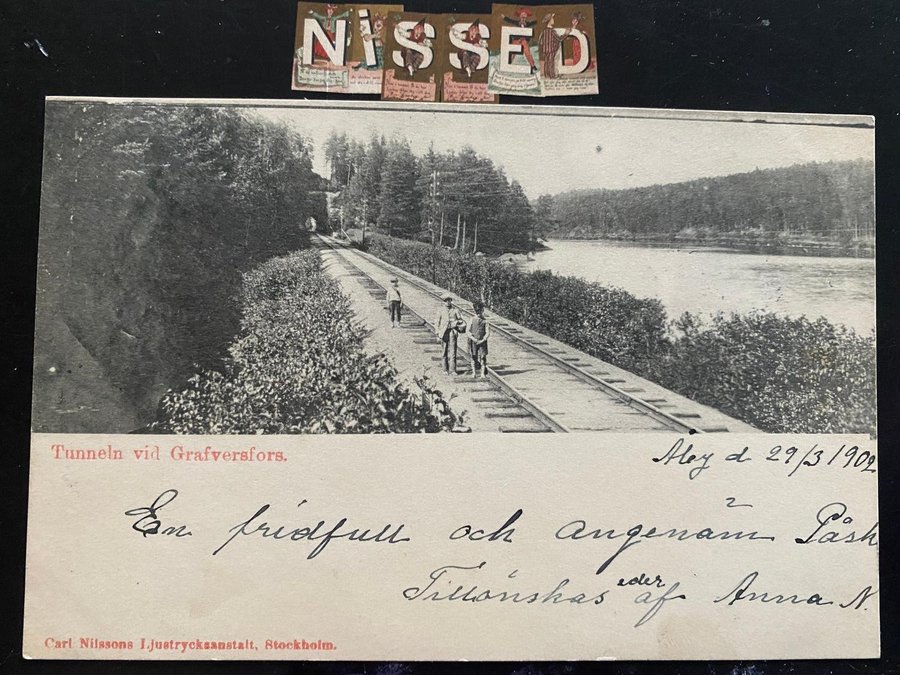 NiSSED
Tunneln vid Grafversfors.
Aley d 29/3 1902
En fridfull och angenäm Påsk
Tillönskas eder af Anna N.
Carl Nilssons Ljustrycksanstalt, Stockholm.